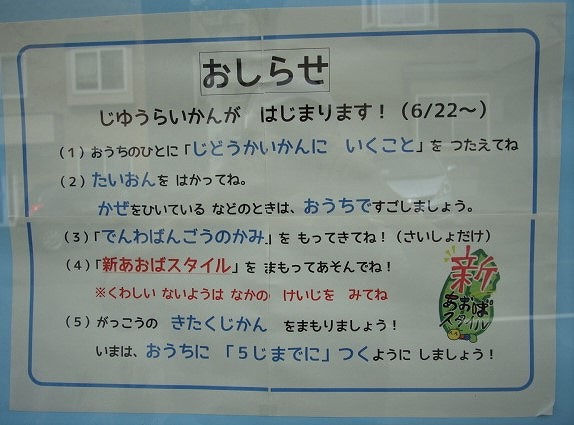 おしらせ
じゆうらいかんが はじまります！（6/22～）
（1）おうちのひとに「じどうかいかんに いくこと」を つたえてね
（2）たいおんを はかってね。
かぜをひいている などのときは、おうちですごしましょう。
（3）「でんわばんごうのかみ」を もってきてね！（さいしょだけ）
（4）「新あおばスタイル」を まもってあそんでね！
※くわしい ないようは なかの けいじを みてね
（5）がっこうの きたくじかん をまもりましょう！
いまは、おうちに 「5じまでに」つくように しましょう！
新
あおば
スタイル